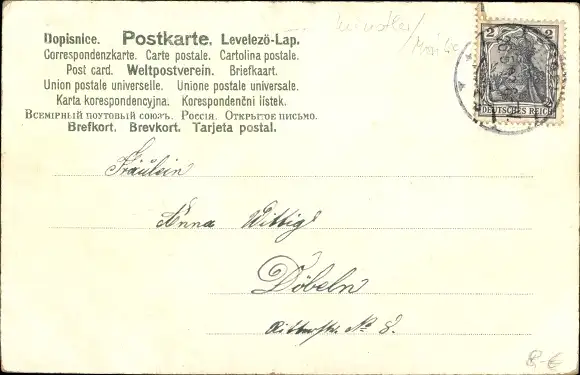 Dopisnice. Postkarte. Levelező-Lap.
Correspondenzkarte. Carte postale. Cartolina postale.
Post card. Weltpostverein. Briefkaart.
Union postale universelle. Unione postale universale.
Karta korespondencyjna. Korespondenční lístek.
Всемірный почтовый союзъ. Россія. Открытое письмо.
Brefkort. Brevkort. Tarjeta postal.
2 2
DEUTSCHES REICH
Fräulein
Anna Wittig
Döbeln
No 8.
8,-€